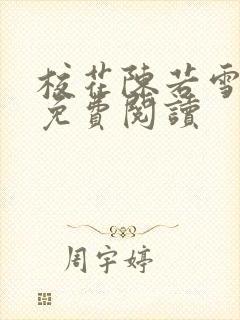 校花陳若雪
免費閱讀
周宇婷